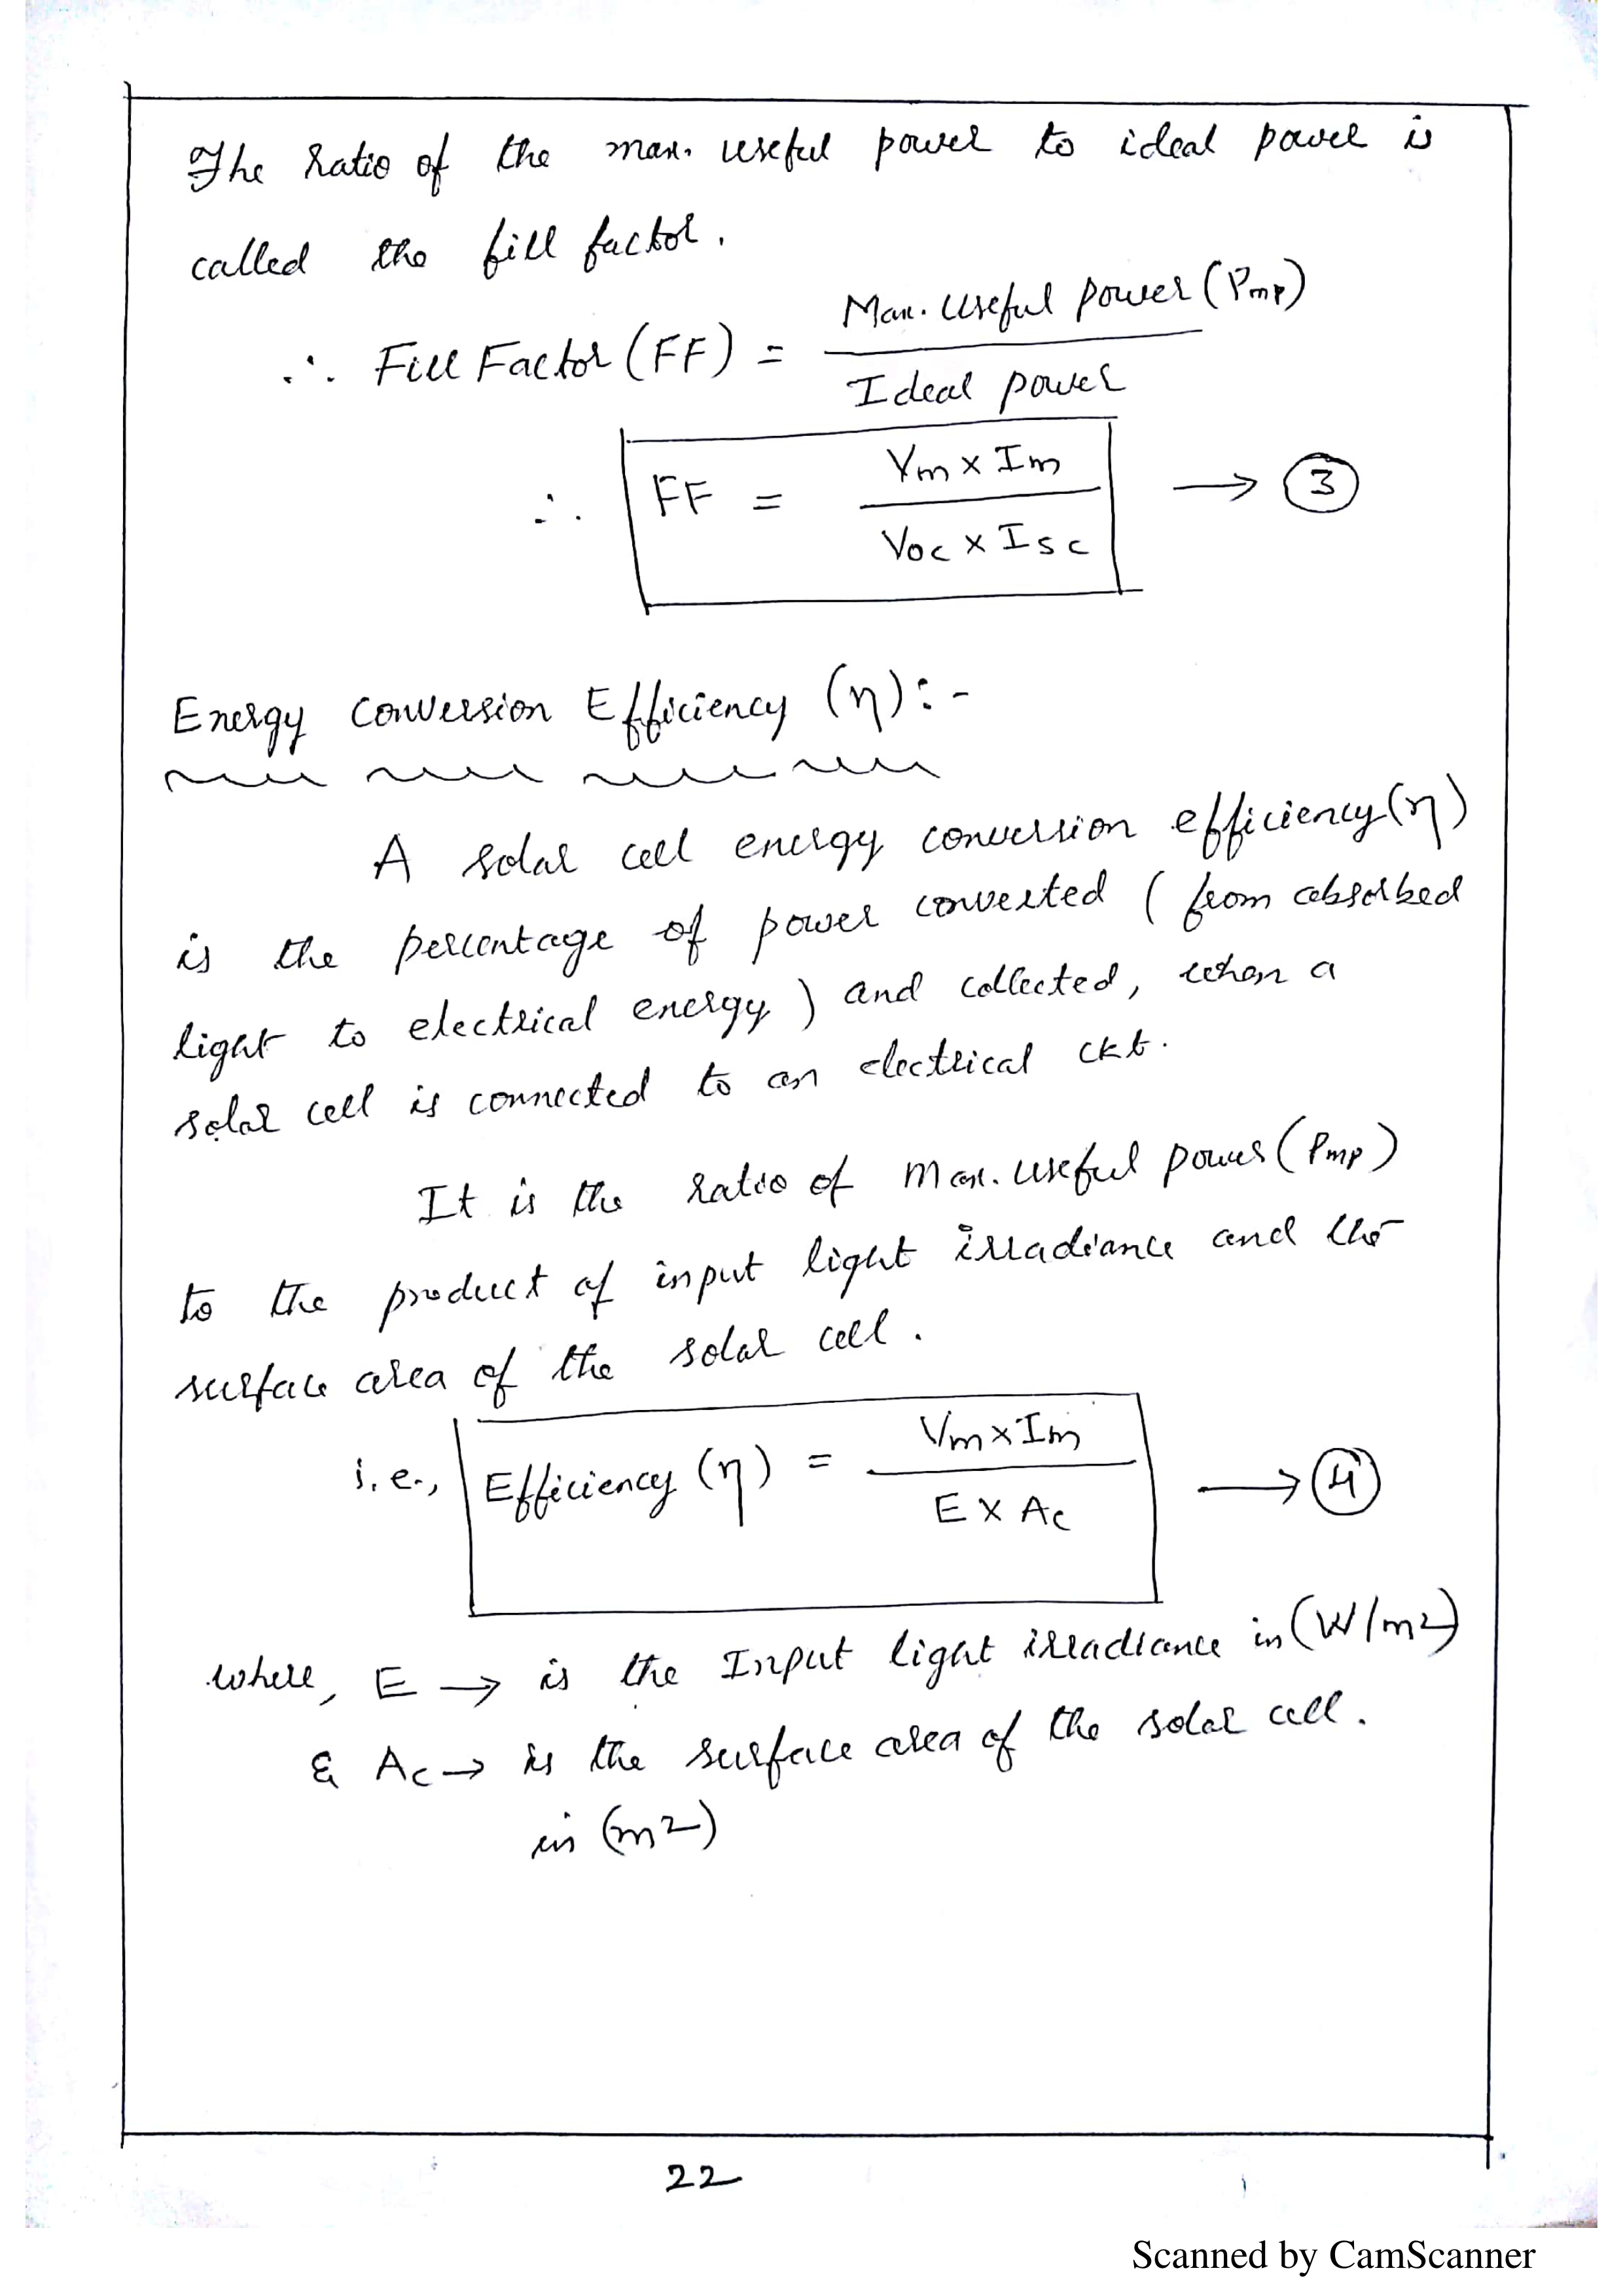 The ratio of the max. useful power to ideal power is
called the fill factor.
∴ Fill Factor (FF) = Max. Useful power (Pmp)
Ideal power
∴ FF = Vm x Im → ③
Voc x Isc
Energy conversion Efficiency (η) :-
A solar cell energy conversion efficiency (η)
is the percentage of power converted ( from absorbed
light to electrical energy ) and collected, when a
solar cell is connected to an electrical ckt.
It is the ratio of Max. useful power (Pmp)
to the product of input light irradiance and the
surface area of the solar cell.
i.e., Efficiency (η) = Vm x Im → ④
E x Ac
where, E → is the Input light irradiance in (W/m2)
& Ac → is the surface area of the solar cell.
in (m2)
22
Scanned by CamScanner